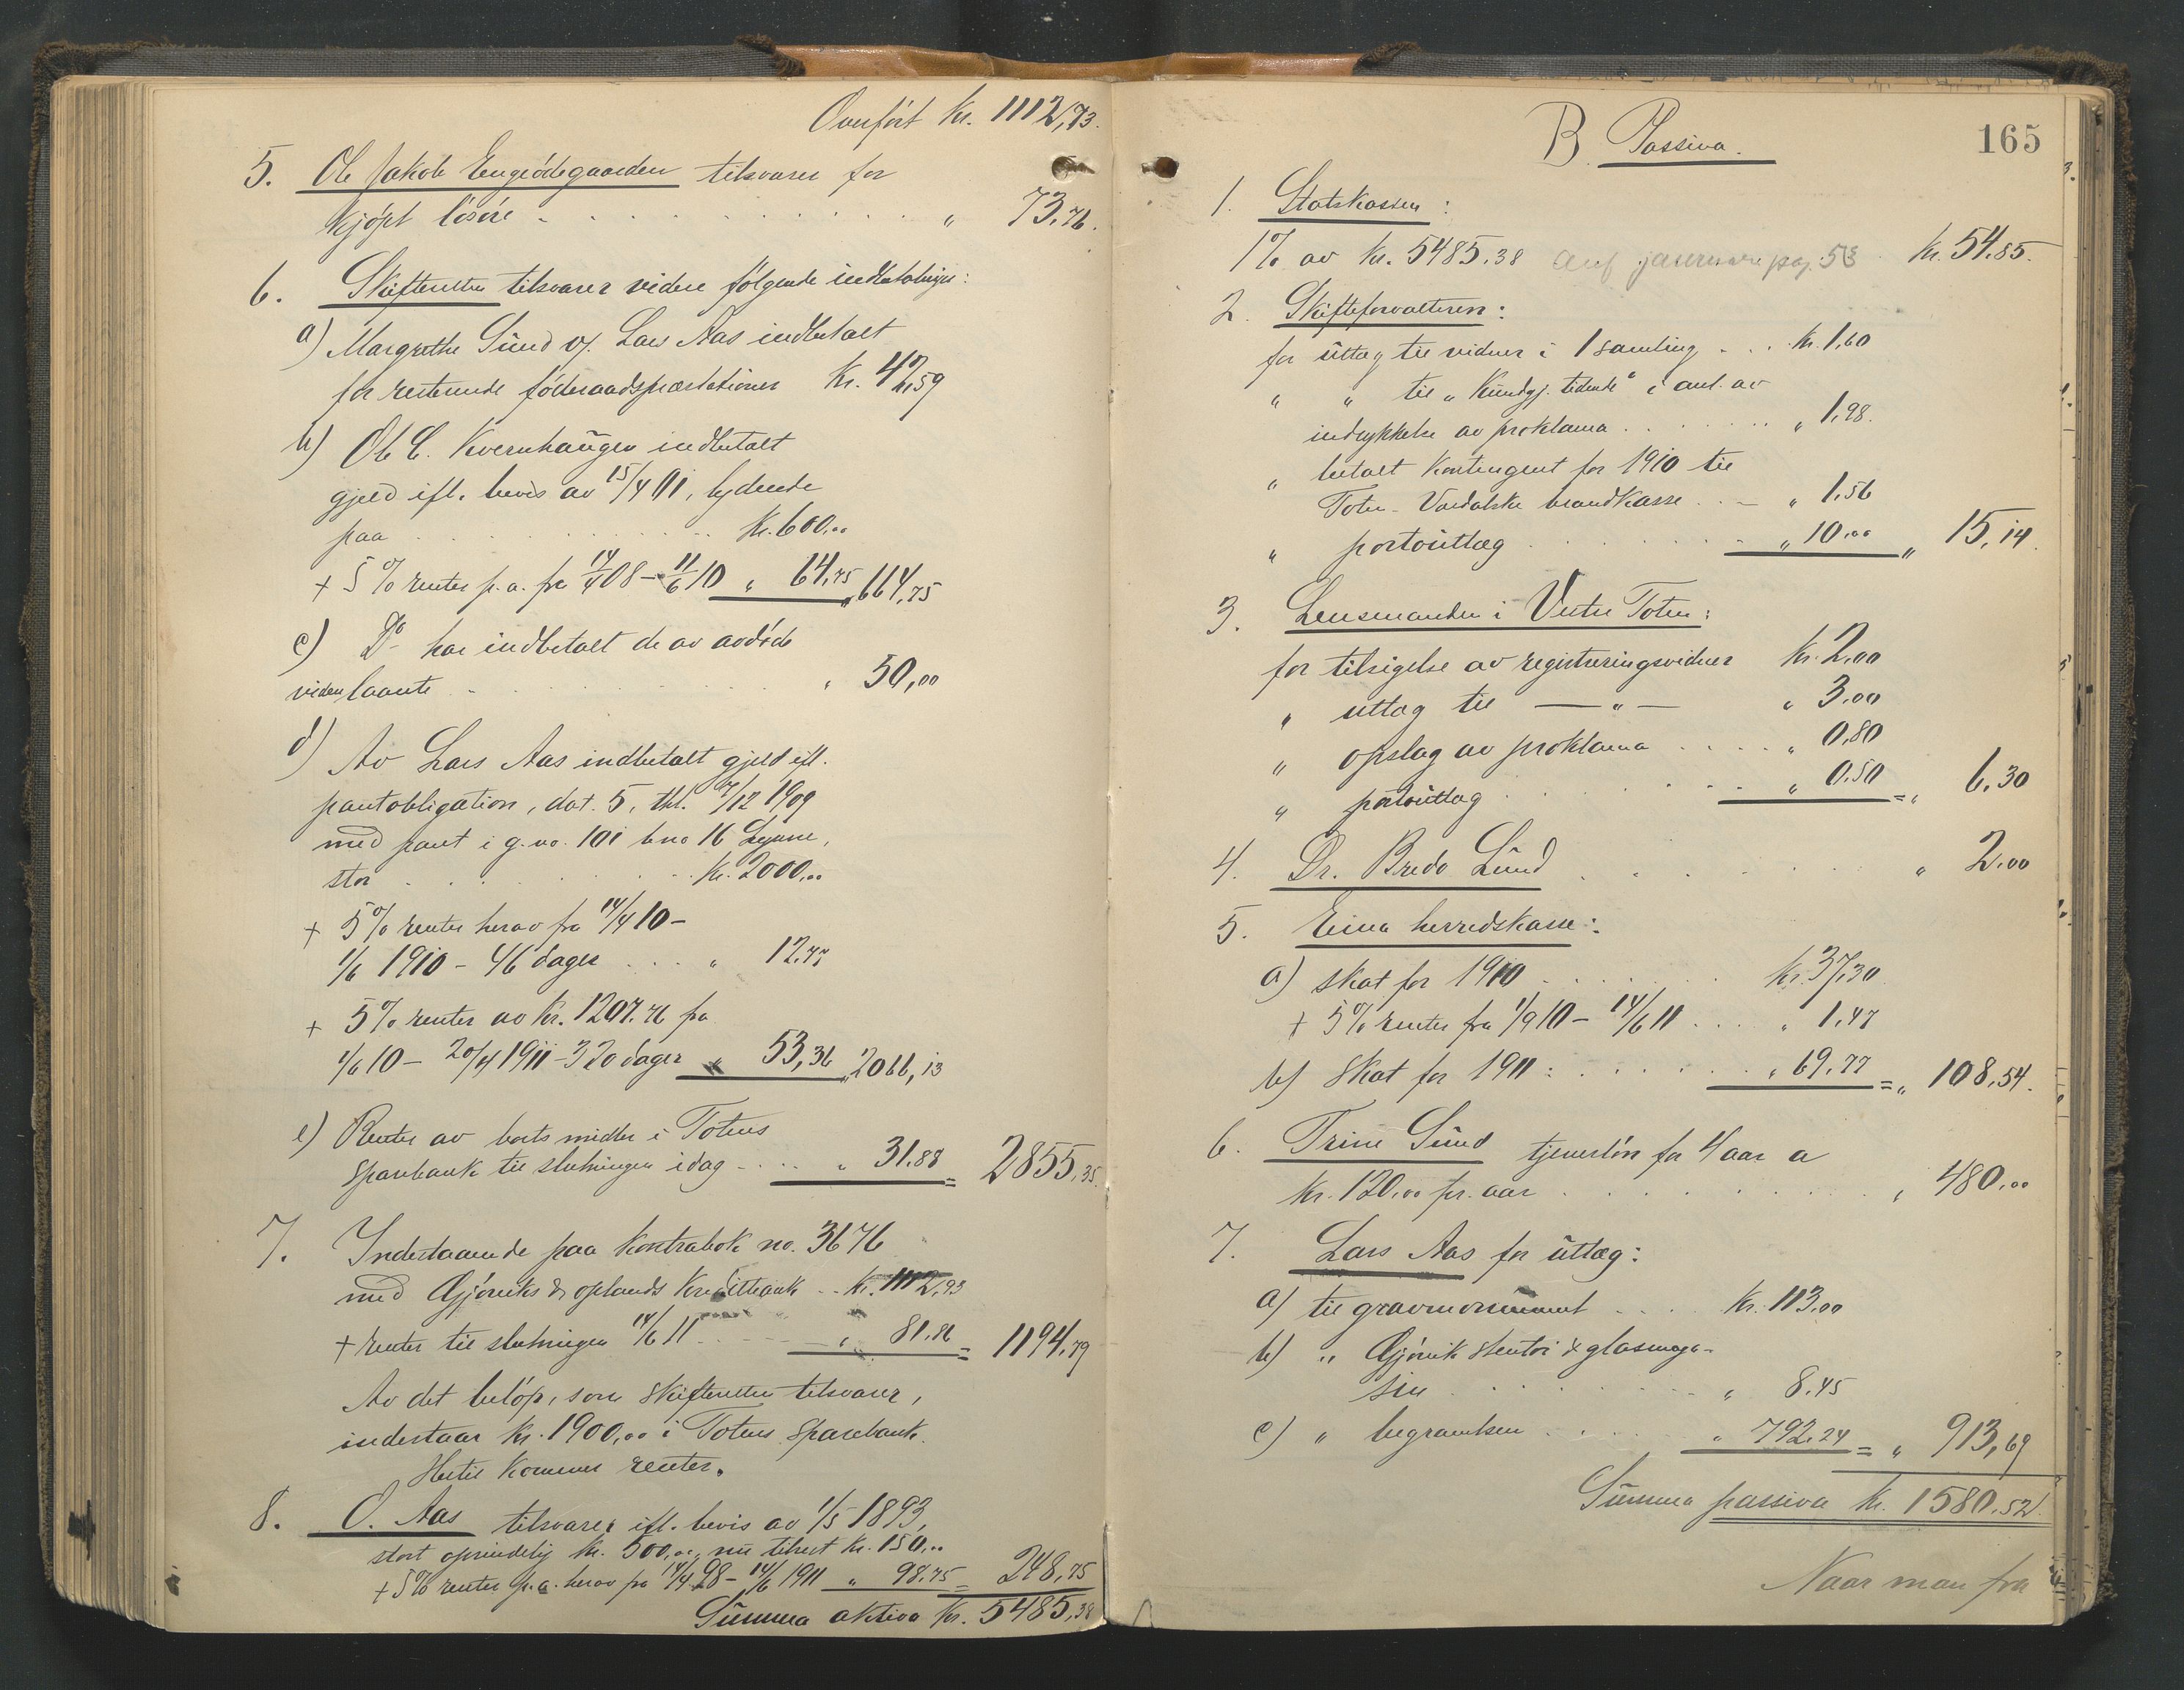 Overført Kr. 1112,73.
5. Ole Jakob Engeødegaarden tilsvarer for
kjøpt løsøre - . . . . . „ 73,76.
6. Skifteretten tilsvarer videre følgende indbetalinger:
a) Margrethe Sund v/ Lars Aas indbetalt
for resterende føderaadspræstationer Kr. 42,59
b) Ole C. Kvernhaugen indbetalt
gjeld ifl. bevis av 15/4 01, lydende
paa . . . . . Kr. 600,00
+ 5 % renter p.a. fra 14/4 08 - 11/6 10 „ 64,75 „ 664,75
c) Do - har indbetalt de av avdøde
viden laante . . . . . „ 50,00
d) Av Lars Aas indbetalt gjeld ifl.
pantobligation, dat. 5, thl. 7/12 1909
med pant i g.no. 101 b.no 16
stor . . . . . Kr. 2000,00
+ 5 % renter herav fra 14/4 10 -
1/6 1910 - 46 dager . . . „ 12,77
+ 5 % renter av Kr. 1207.76 fra
1/6 10 - 20/4 1911 - 320 dager „ 53,36 „ 2066,13
e) Renter av boets midler i Totens
Sparebank til slutningen idag - . . . „ 31.88 = 2855,35.
7. Indestaaende paa Kontrabok no. 3676
med Gjøviks & oplands Kreditbank . . Kr. 1112,93
+ renter til slutningen 14/6 11 . . . „ 81.86 = 1194,79
Av det beløp, som skifteretten tilsvarer,
indestaar Kr. 1900,00 i Totens Sparebank.
Hertil kommer renter.
8. O. Aas tilsvarer ifl. bevis av 1/5 1893,
stort oprindelig Kr. 500,00, nu tilrest Kr. 150,00
+ 5 % renter p.a. herav fra 14/4 98 - 14/6 1911 „ 98,75 = 248,75
Summa aktiva Kr. 5485,38
165
B. Passiva.
1. Statskassen:
1 % av Kr. 5485.38 pag. 53 Kr. 54.85.
2. Skifteforvalteren:
for utlæg til vidner i 1 samling . . . Kr. 1,60
„ „ til „Kundgj. tidende" i anl. av
indrykkelse av proklama . . . . . „ 1,98.
„ betalt Kontingent for 1910 til
Toten-Vardalske brandkasse . . - „ 1.56
„ portoutlæg . . . . . „ 10.00 „ 15,14.
3. Lensmanden i Vestre Toten:
for tilsigelse av registreringsvidner Kr. 2,00
„ utlæg til — „ — „ 3.00
„ opslag av proklama . . . . „ 0,80
„ portoutlæg . . . . . „ 0.50 = „ 6.30
4. Dr. Bredo Lund . . . . . „ 2.00
5. Eina herredskasse:
a) skat for 1910 . . . . . Kr. 37,30
+ 5 % renter fra 1/9 10 - 14/6 11 . . . „ 1,47
b) Skat for 1911: . . . . . „ 69.77 = „ 108,54.
6. Trine Sund tjenerløn for 4 aar a
Kr. 120.00 pr. aar . . . . . „ 480.00
7. Lars Aas for utlæg:
a) til gravmonument . . . . Kr. 113,00
b) „ Gjøvik stentøi & glasmaga-
sin . . . . . „ 8.45
c) „ begravelsen . . . . . „ 792.24 = „ 913,69
Summa passiva Kr. 1580.52.
Naar man fra